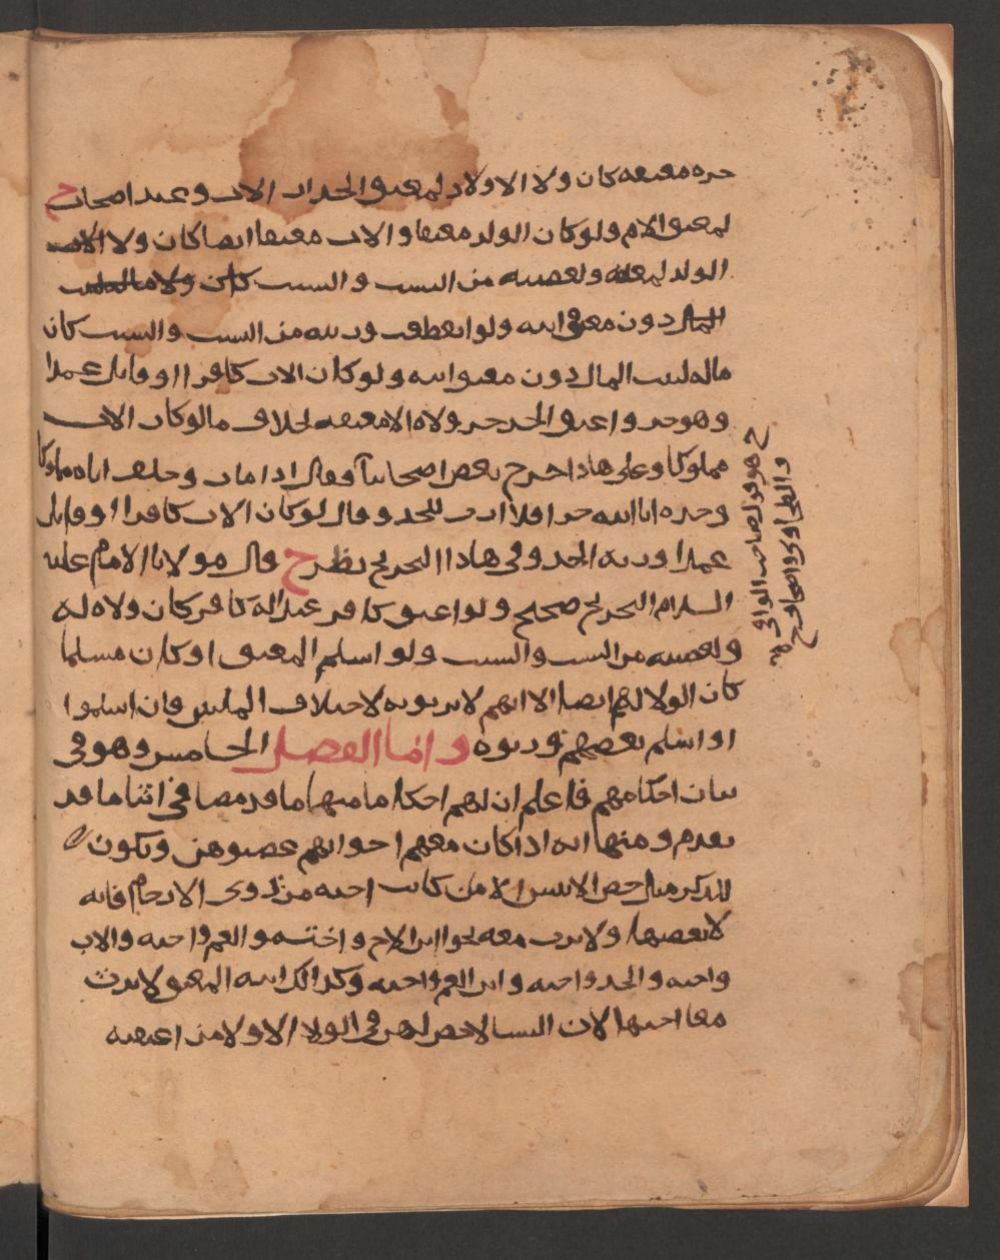 حره معتقه كان ولا الاولاد لمعتق الجد اب الاب وعند اصحاب ح
لمعتق الام ولو كان الولد معتقا والاب معتقا ايضا كان ولا
الولد لمعتقه ولعصبته من النسب والسبب كان
المال دون معتق ابنه ولو انعطف ورثته من النسب والسبب كان
ماله لبيت المال دون معتق ابنه ولو كان الاب كافرا او قاتل عمدا
وهو حر واعتق الجد جر ولاه الا معتقه بخلاف ما لو كان الاب
مملوكا وعلى هاذا خرج بعض اصحابنا فقال اذا مات وخلف اباه مملوكا
وجده ابا ابيه حرا فلا ارث للجد وقال لو كان الاب كافرا او قاتل
عمدا ورثه الجد وفي هاذا التخريج نظر ح قال مولانا الامام عليه
السلام التخريج صحيح ولو اعتق كافر عبدا له كافر كان ولاه له
ولعصبته من النسب والسبب ولو اسلم المعتق او كان مسلما
كان الولا لهم ايضا الا انهم لا يرثونه لاختلاف الملتين فان اسلموا
او اسلم بعضهم ورثوه واما الفصل الخامس وهو في
بيان احكامهم فاعلم ان لهم احكاما منها ما قد مضا في اثنا ما قد
تقدم ومنها انه اذا كان معهم اخواتهم عصبوهن وتكون
للذكر مثل حظ الانثيين الا من كانت اخته من ذوي الارحام فانه
لا يعصبها ولا يرث معه نحو ابن الاخ واخته والعم واخته والاب
واخته والجد واخته وابن العم واخته وكذالك ابنه المعتق لا يرث
مع اخيها لان النسا لا حض لهن في الولا الا ولا من اعتقنه
ح هو قول صاحب الوافي
والطحاوي واصحاب ح